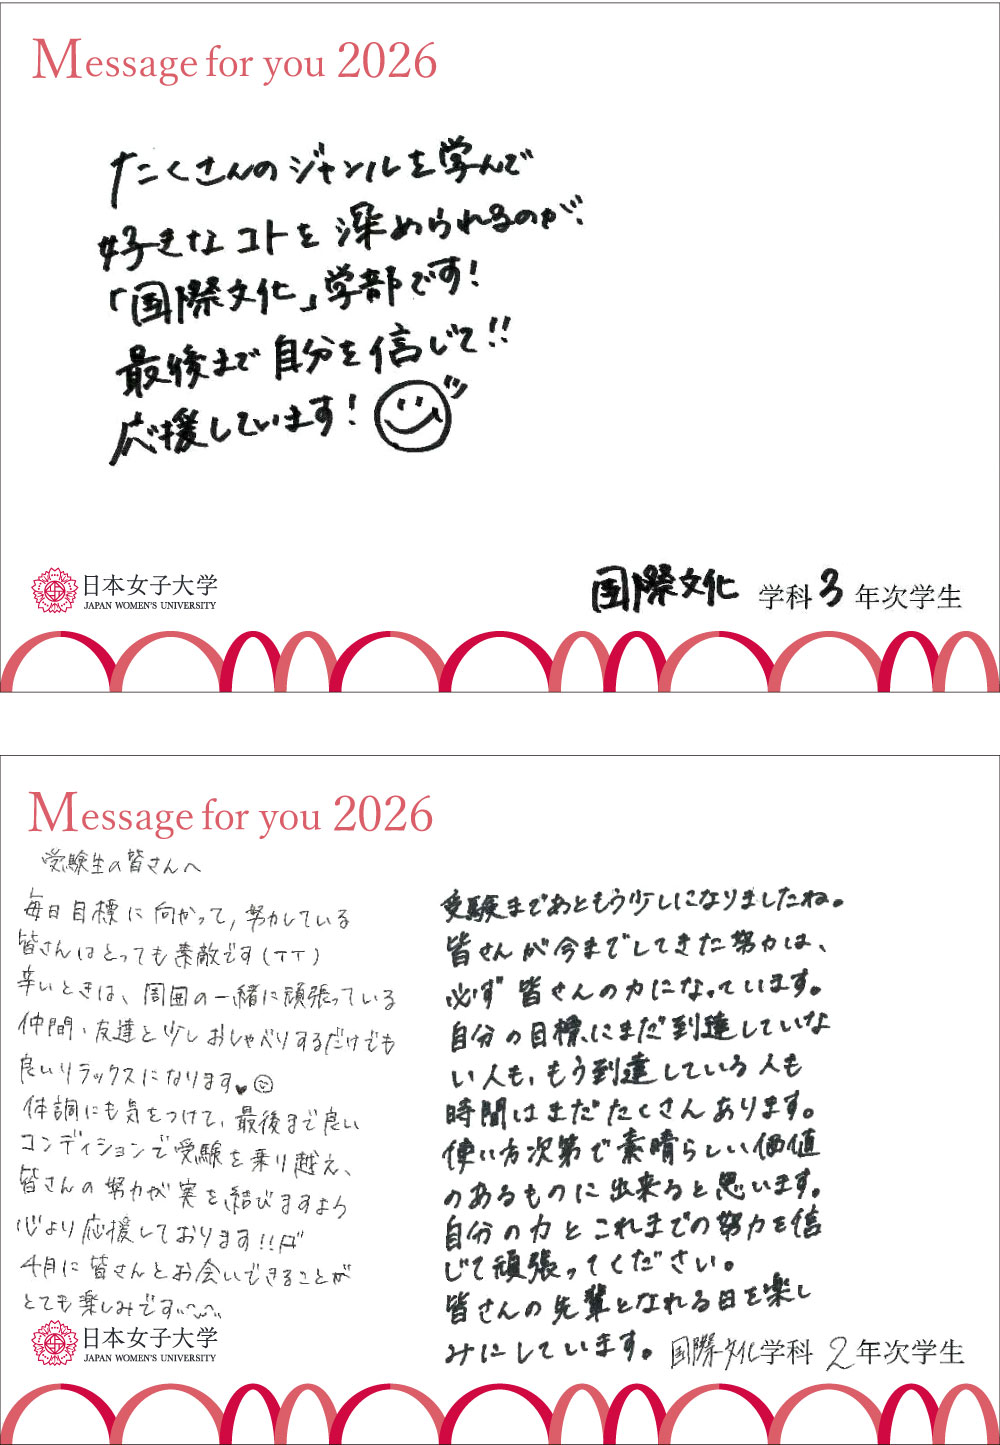 Message for you 2026
たくさんのジャンルを学んで
好きなコトを深められるのが、
「国際文化」学部です!
最後まで自分を信じて!!
応援しています!
日本女子大学
JAPAN WOMEN'S UNIVERSITY
国際文化 学科 3 年次学生
Message for you 2026
受験生の皆さんへ
毎日目標に向かって、努力している
皆さんはとっても素敵です(TT)
辛いときは、周囲の一緒に頑張っている
仲間・友達と少しおしゃべりするだけでも
良いリラックスになります♥
体調にも気をつけて、最後まで良い
コンディションで受験を乗り越え、
皆さんの努力が実を結びますよう
心より応援しております!!
4月に皆さんとお会いできることが
とても楽しみです
受験まであともう少しになりましたね。
皆さんが今までしてきた努力は、
必ず皆さんの力になっています。
自分の目標にまだ到達していな
い人も、もう到達している人も
時間はまだたくさんあります。
使い方次第で素晴らしい価値
のあるものに出来ると思います。
自分の力とこれまでの努力を信
じて頑張ってください。
皆さんの先輩となれる日を楽し
みにしています。
日本女子大学
JAPAN WOMEN'S UNIVERSITY
国際文化学科 2 年次学生